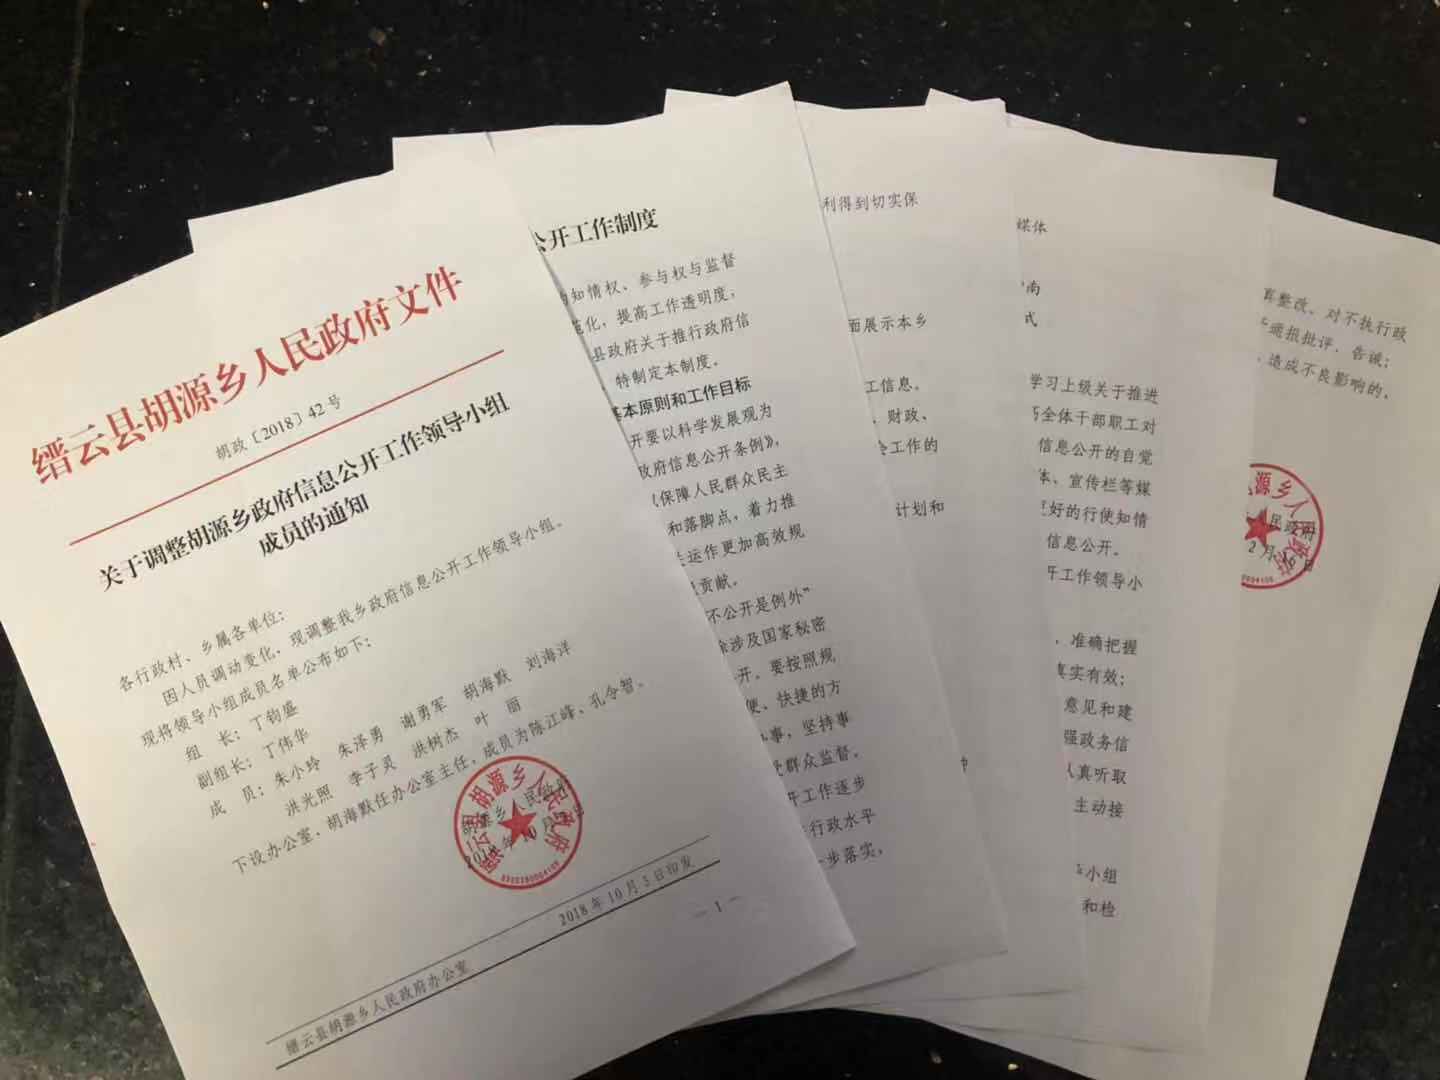 缙云县胡源乡人民政府文件
胡政〔2018〕42号
关于调整胡源乡政府信息公开工作领导小组
成员的通知
各行政村、乡属各单位：
因人员调动变化，现调整我乡政府信息公开工作领导小组。
现将领导小组成员名单公布如下：
组 长：丁钧盛
副组长：丁伟华
成 员：朱小玲 朱泽勇 谢勇军 胡海默 刘海洋
洪光照 李子灵 洪树杰 叶 丽
下设办公室，胡海默任办公室主任，成员为陈江峰、孔令智。
胡源乡人民政府
2018年10月
缙云县胡源乡人民政府办公室 2018年10月5日印发
— 1 —
公开工作制度
知情权、参与权与监督
范化，提高工作透明度，
县政府关于推行政府信
特制定本制度。
基本原则和工作目标
开要以科学发展观为
政府信息公开条例》，
保障人民群众民主
和落脚点，着力推
运作更加高效规
贡献。
不公开是例外”
除涉及国家秘密
开。要按照规
便、快捷的方
办事，坚持事
受群众监督。
开工作逐步
行政水平
步落实，
利得到切实保
面展示本乡
工信息。
、财政、
会工作的
计划和
媒体
南
式
学习上级关于推进
全体干部职工对
信息公开的自觉
体、宣传栏等媒
更好的行使知情
信息公开。
开工作领导小
，准确把握
真实有效；
意见和建
强政务信
认真听取
主动接
小组
和检
整改、对不执行政
通报批评、告诫；
，造成不良影响的，
人民政府
2月16日